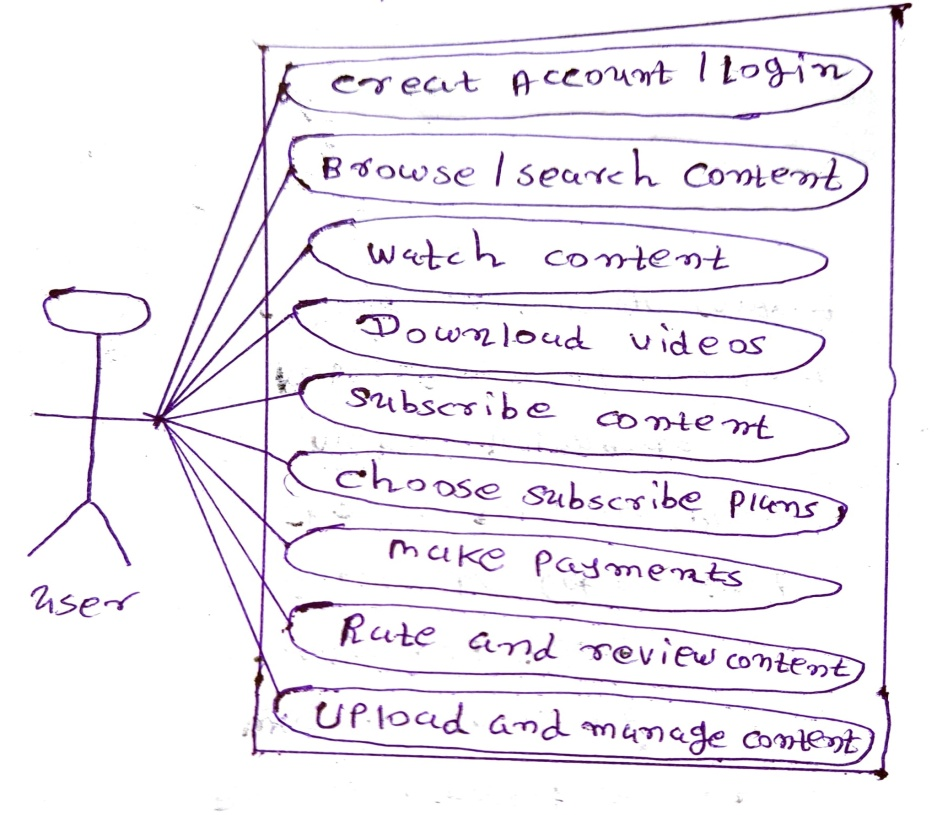 Creat Account / Login
Browse / search Content
Watch content
Download videos
Subscribe content
Choose Subscribe Plans
Make Payments
Rate and review content
Upload and manage content
User